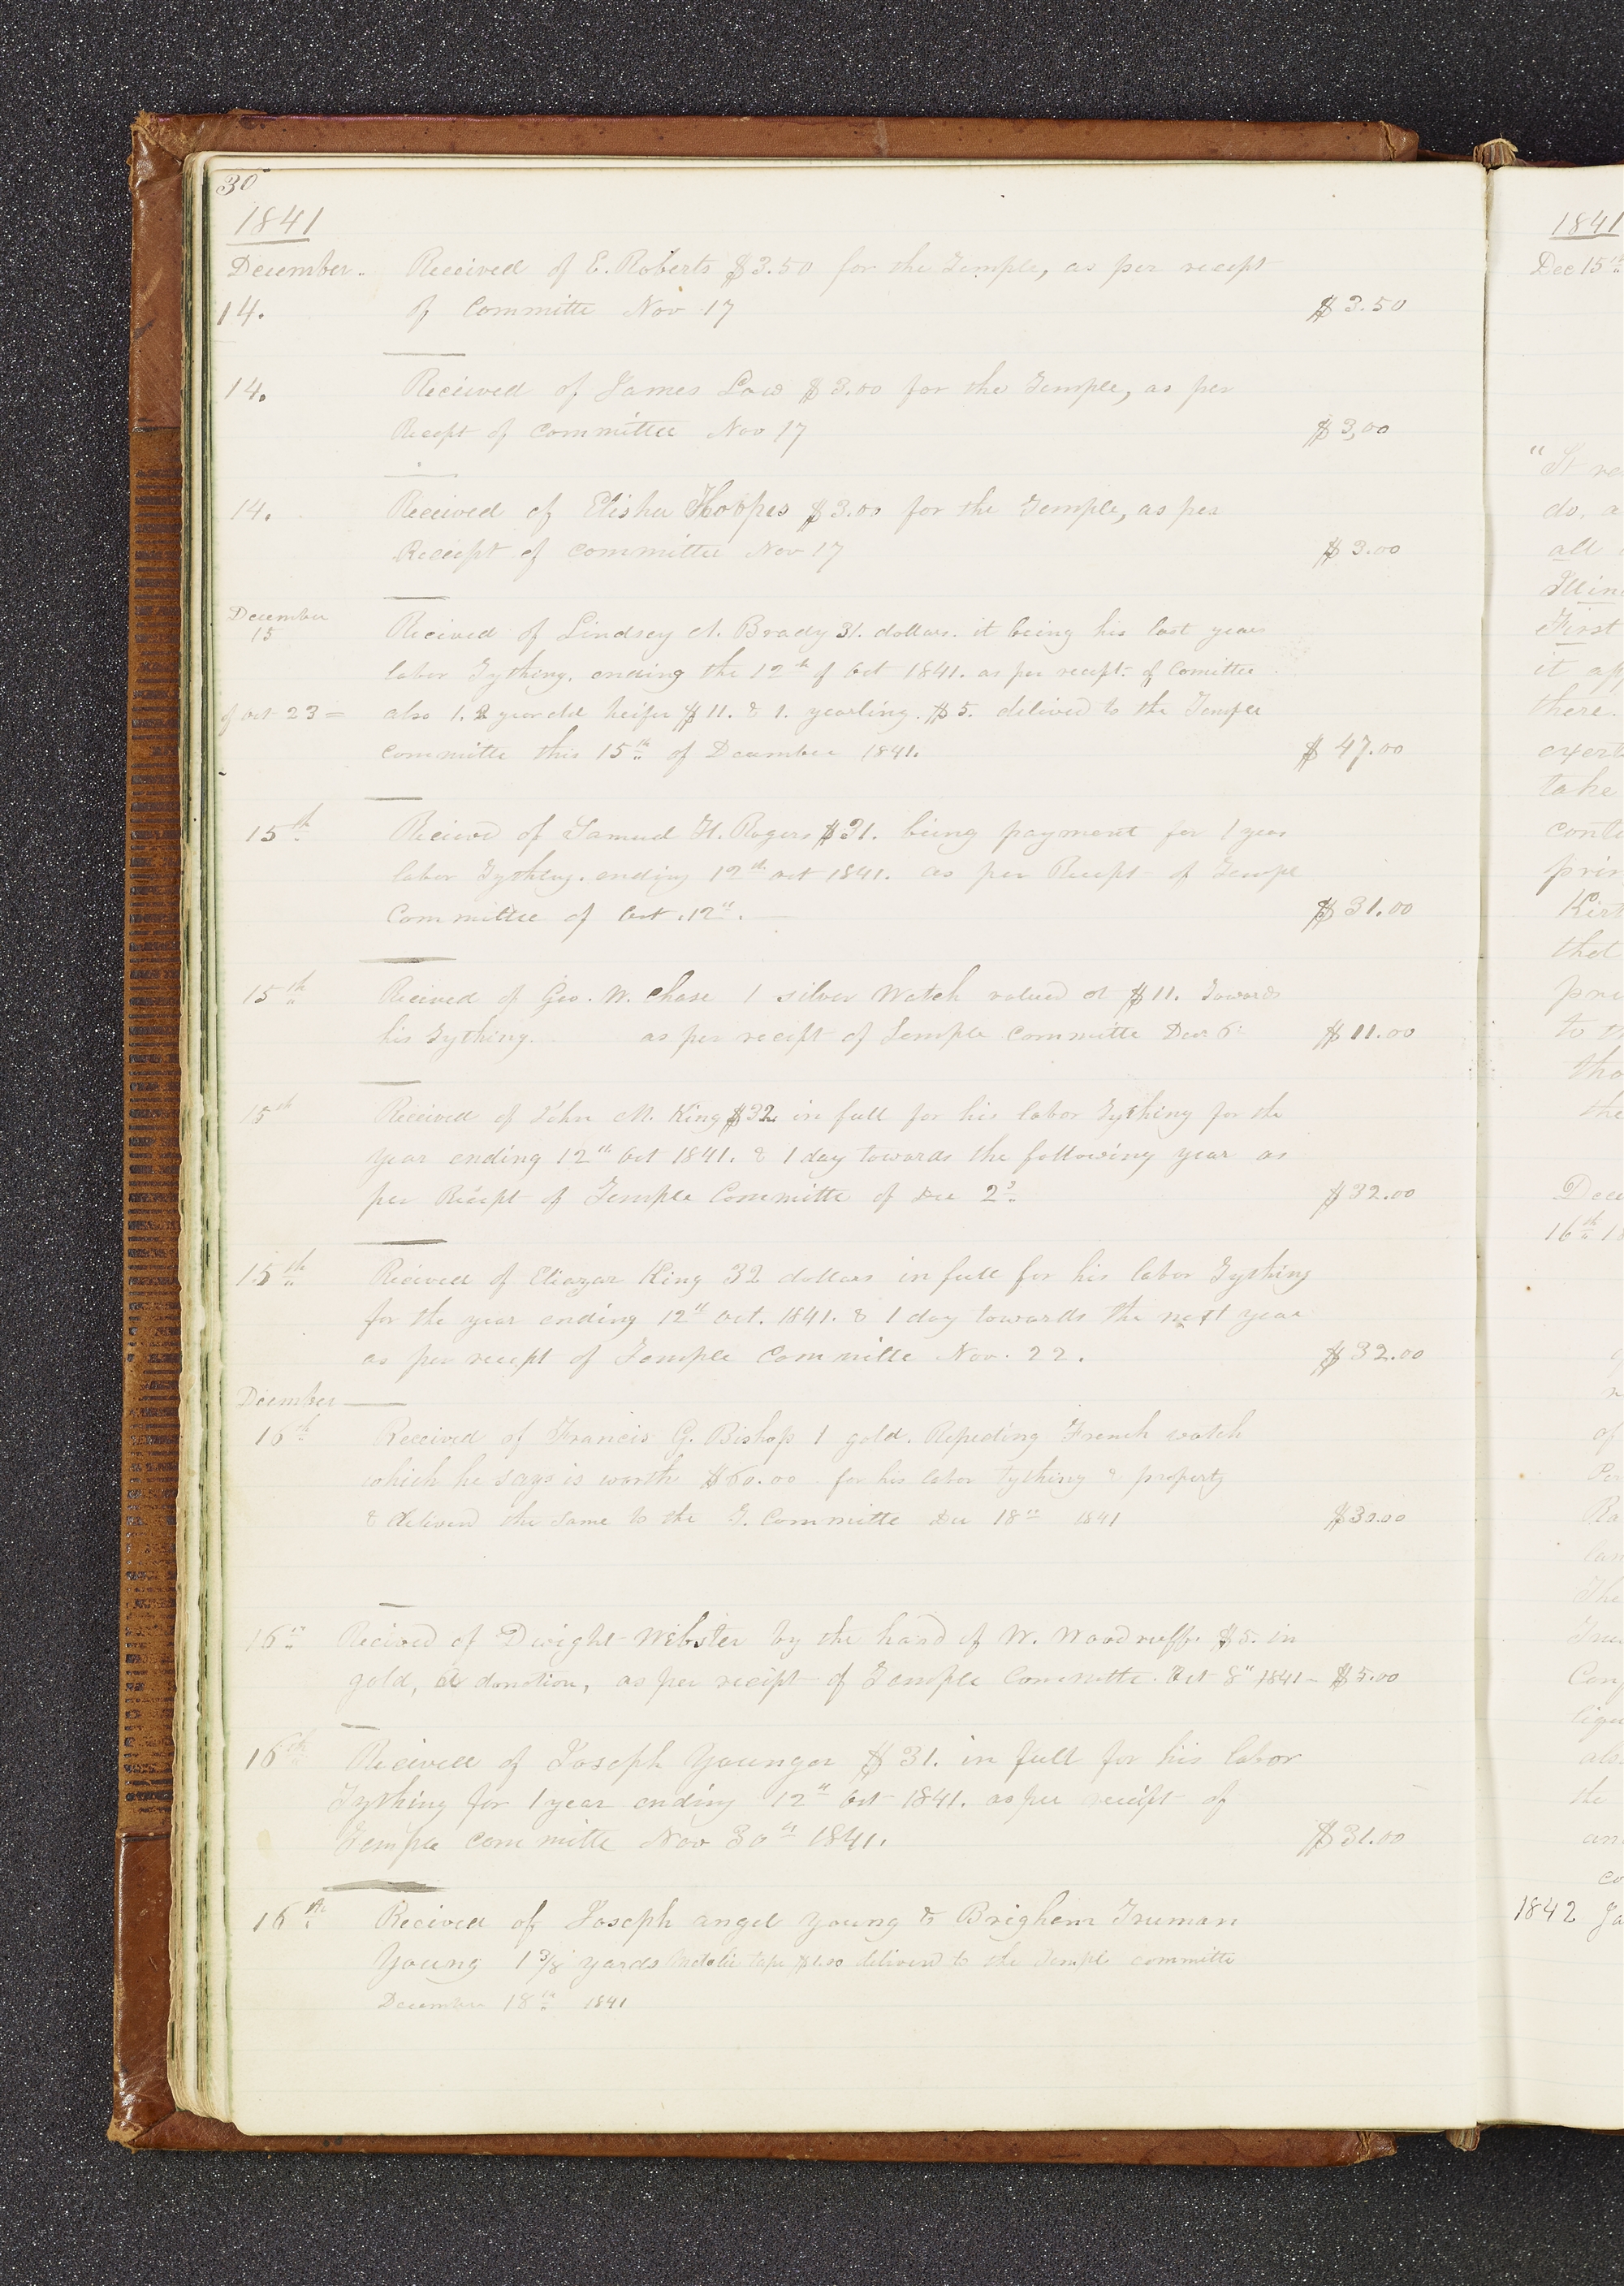 30
1841
December. Received of E. Roberts $3.50 for the Temple, as per receipt
14. of Committe Nov 17 $3.50
14. Received of James Law $3.00 for the Temple, as per
Receipt of Committee Nov 17 $3,00
14. Received of Elisha Hoopes $3.00 for the Temple, as per
Receipt of Committee Nov 17 $3.00
December
15 Recieved of Lindsey A. Brady 31. dollars. it being his last years
labor Tything. ending the 12th of Oct 1841. as per receipt of Comittee
of oct 23 = also 1. 2 year old heifer $11. & 1. yearling. $5. delived to the Temple
Committe this 15th of December 1841. $47.00
15th Recievd of Samuel H. Rogers $31. being payment for 1 year
labor Tything. ending 12th oct 1841. as per Receipt of Temple
Committee of Oct. 12th. $31.00
15th Recieved of Geo. W. Chase 1 silver Watch valued at $11. Towards
his Tything. as per receipt of Temple Committe Dec 6. $11.00
15th Recieved of John M. King $32 in full for his labor Tything for the
year ending 12th Oct 1841. & 1 day towards the following year as
per Reciept of Temple Committe of Dec 2d $32.00
15th Recieved of Eliazar King 32 dollars in full for his labor Tything
for the year ending 12th Oct. 1841. & 1 day towards the next year
as per reciept of Temple Committe Nov. 22. $32.00
December
16th Received of Francis G. Bishop 1 gold. Repeating French watch
which he says is worth $60.00 for his labor tything & property
& deliverd the same to the T. Committe Dec 18th 1841 $30.00
16th Recieved of Dwight Webster by the hand of W. Woodruff. $5. in
gold, a donation, as per reciept of Temple Committe. Oct 8th 1841 - $5.00
16th Recieved of Joseph Younger $31. in full for his labor
Tything for 1 year ending 12th Oct 1841. as per reciept of
Temple committe Nov 30th 1841. $31.00
16th Recived of Joseph angel young & Brighem Truman
Young 1 3/8 yards Metalic tape $1.00 deliverd to the Temple committe
December 18th 1841
1841
Dec 15th
do, a
all
First
it
there.
take
Kirt
to
the
16th
of
The
the
1842 Ja